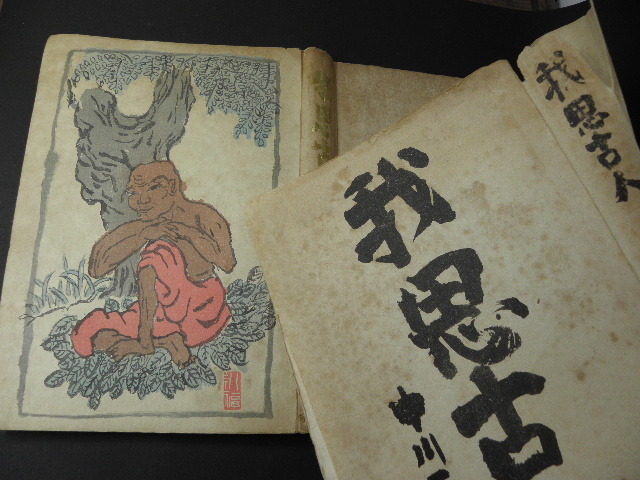 我思古人
我思古
中川